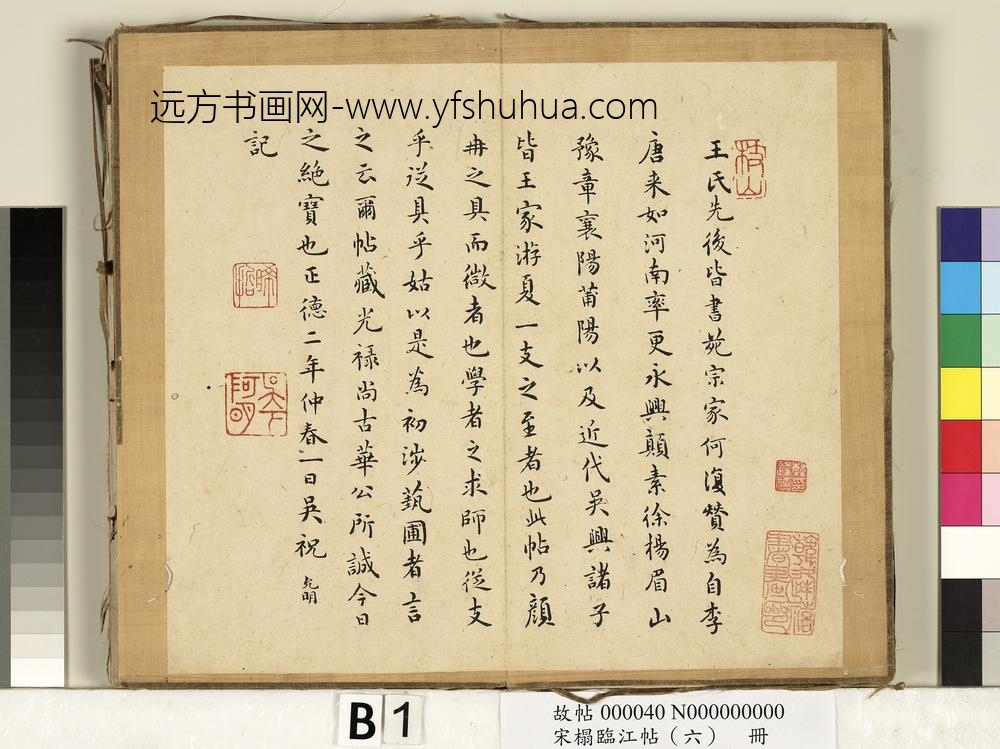 远方书画网-www.yfshuhua.com
枝山
王氏先後皆書苑宗家何復贊為自李
唐来如河南率更永興顛素徐楊眉山
豫章襄陽莆陽以及近代吳興諸子
皆王家游夏一支之至者也此帖乃顏
冉之具而微者也學者之求師也從支
乎從具乎姑以是為初涉蓺圃者言
之云爾帖藏光禄尚古華公所誠今日
之絶寶也正德二年仲春一日吳祝允明
記
B 1
故帖 000040 N000000000
宋搨臨江帖（六） 冊